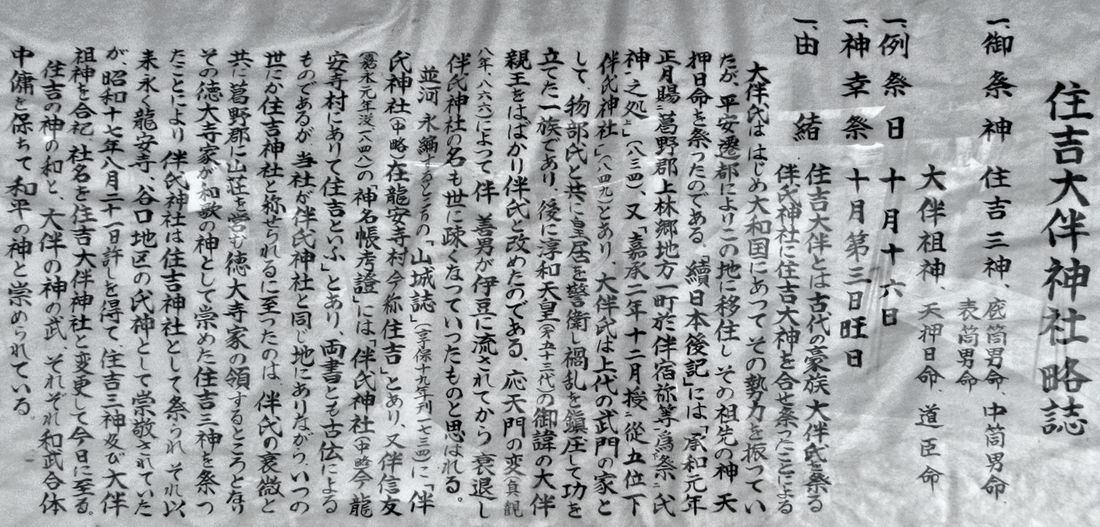 住吉大伴神社略誌
一、御祭神　住吉三神、底筒男命、中筒男命、
表筒男命
大伴祖神、天押日命、道臣命
一、例祭日　十月十六日
一、神幸祭　十月第三日旺日
一、由緒　住吉大伴とは古代の豪族大伴氏を祭る
伴氏神社に住吉大神を合せ祭ったことによる
大伴氏ははじめ大和国にあって、その勢力を振ってい
たが、平安遷都によりこの地に移住し、その祖先の神、天
押日命を祭ったのである。続日本後記」には「承和元年
正月賜ニ葛野郡上林郷地方一町於伴宿祢等ニ為祭ニ氏
神ニ之処」(八三四)、又「嘉承二年十二月授ニ従五位下
伴氏神社」(八四九)とあり、大伴氏は上代の武門の家と
して、物部氏と共に皇居を警衛し禍乱を鎮圧して功を
立てた一族であり、後に淳和天皇(第五十三代)の御諱の大伴
親王をはばかり伴氏と改めたのである。応天門の変(貞観
八年、八六六)によって伴　善男が伊豆に流されてから、衰退し
伴氏神社の名も世に疎くなっていったものと思はれる。
並河永編するところの「山城誌」(享保十九年刊一七三四)に「伴
氏神社(中略)在龍安寺村今称住吉」とあり、又伴信友
(嘉永元年没一八四八)の神名帳考證」には「伴氏神社(中略)今龍
安寺村にありて住吉といふ」とあり、両書とも古伝による
ものであるが、当社が伴氏神社と同じ地にありながら、いつの
世にか住吉神社と称せられるに至つたのは、伴氏の衰微と
共に葛野郡に山荘を営む徳大寺家の領するところとなり
その徳大寺家が和歌の神として崇めた住吉三神を祭つ
たことにより、伴氏神社は住吉神社として祭られ、それ以
来永く龍安寺、谷口地区の氏神として崇敬されていた
が、昭和十七年八月三十一日許しを得て、住吉三神及び大伴
祖神を合祀、社名を住吉大伴神社と変更して今日に至る。
住吉の神の和と、大伴の神の武、それぞれ和武合体
中庸を保ちて和平の神と崇められている。